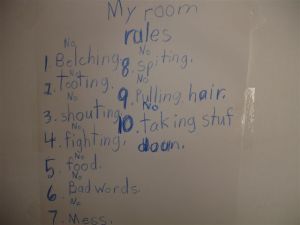 My room
rules
No
1. Belching.
No
2. Tooting.
No
3. shouting.
No
4. fighting.
No
5. food.
No
6 Bad words.
No
7. Mess.
No
8. spiting.
No
9. Pulling hair.
No
10. taking stuf
down.